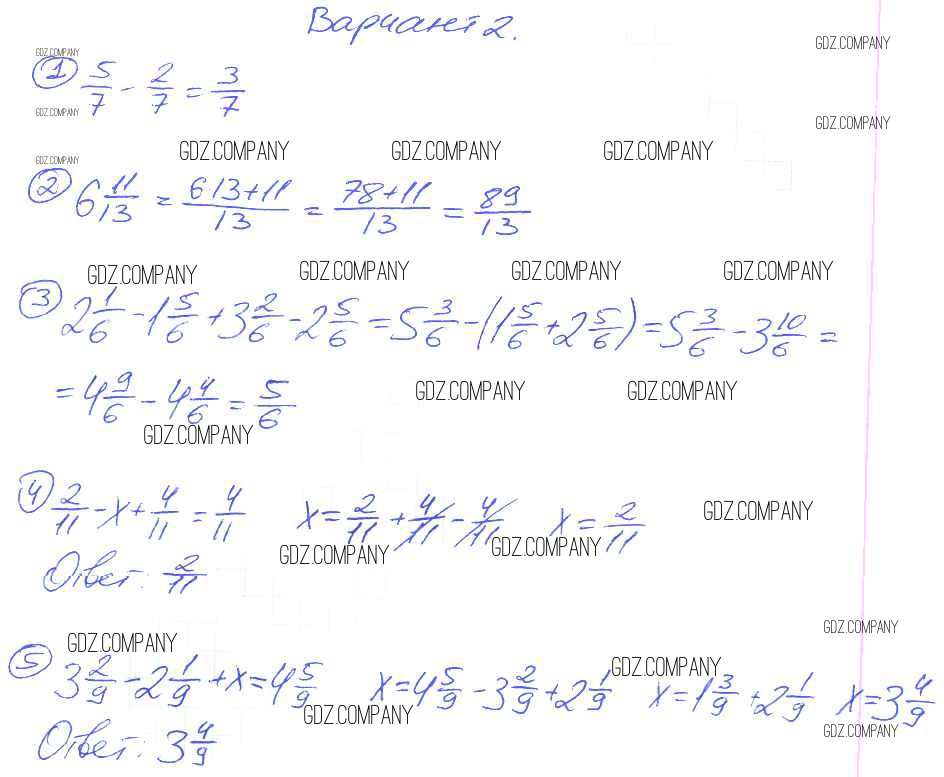 Вариант 2.
GDZ.COMPANY GDZ.COMPANY
① 5/7 - 2/7 = 3/7
GDZ.COMPANY GDZ.COMPANY
GDZ.COMPANY GDZ.COMPANY GDZ.COMPANY GDZ.COMPANY
② 6 11/13 = (6·13+11)/13 = (78+11)/13 = 89/13
GDZ.COMPANY GDZ.COMPANY GDZ.COMPANY GDZ.COMPANY
③ 2 1/6 - 1 5/6 + 3 2/6 - 2 5/6 = 5 3/6 - (1 5/6 + 2 5/6) = 5 3/6 - 3 10/6 =
= 4 9/6 - 4 4/6 = 5/6 GDZ.COMPANY GDZ.COMPANY
GDZ.COMPANY
④ 2/11 - x + 4/11 = 4/11 x = 2/11 + 4/11 - 4/11 x = 2/11 GDZ.COMPANY
GDZ.COMPANY GDZ.COMPANY
Ответ: 2/11
GDZ.COMPANY GDZ.COMPANY
GDZ.COMPANY
⑤ 3 2/9 - 2 1/9 + x = 4 5/9 x = 4 5/9 - 3 2/9 + 2 1/9 x = 1 3/9 + 2 1/9 x = 3 4/9
GDZ.COMPANY GDZ.COMPANY
Ответ: 3 4/9